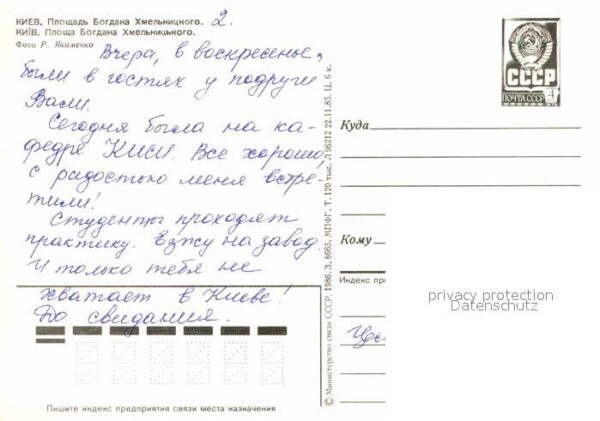 КИЕВ. Площадь Богдана Хмельницкого. 2.
КИЇВ. Площа Богдана Хмельницького.
Фото Р. Якименко
Вчера, в воскресенье,
были в гостях у подруги
Вали.
Сегодня была на ка-
федре КИСИ. Все хорошо,
с радостью меня встре-
тили!
Студенты проходят
практику. Езжу на завод.
И только тебя не
хватает в Киеве!
До свидания.
Пишите индекс предприятия связи места назначения
© Министерство связи СССР, 1986. З. 8665. МПФГ. Т. 120 тыс. Л 96212 22.11.85. Ц. 6 к.
СССР
ПОЧТА СССР 4
Куда
Кому
Индекс пре
privacy protection
Datenschutz